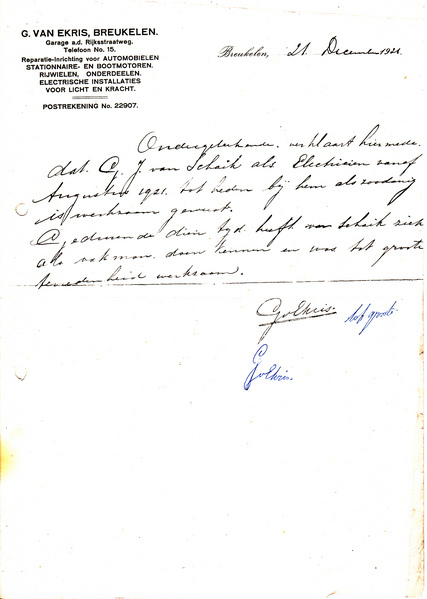 G. VAN EKRIS, BREUKELEN.
Garage a.d. Rijksstraatweg.
Telefoon No. 15.
Reparatie-Inrichting voor AUTOMOBIELEN
STATIONNAIRE- EN BOOTMOTOREN.
RIJWIELEN, ONDERDEELEN.
ELECTRISCHE INSTALLATIES
VOOR LICHT EN KRACHT.
POSTREKENING No. 22907.
Breukelen, 21 December 1921.
Ondergeteekende, verklaart hiermede.
dat. G. J. van Schaik als Electricien vanaf
Augustus 1921. tot heden bij hem als zoodanig
is werkzaam geweest.
Gedurende dien tijd heeft van Schaik zich
als vakman doen kennen en was tot groote
tevredenheid werkzaam.
GvEkris. tot groote
GvEkris.